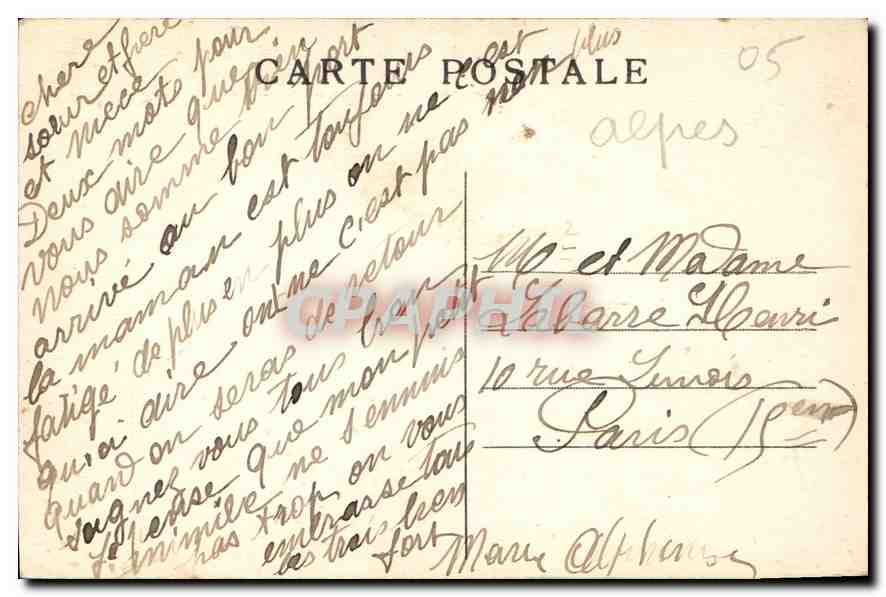 CARTE POSTALE
05
alpes
chere
soeur et frere
et niece
Deux mots pour
vous dire que bien
nous somme bien
arrivé au bon port
la maman est toujours
fatigé de plus en plus on ne c'est
qu'oi dire on ne c'est pas non plus
quand on seras de retour
soignez vous tous bien
je pense que mon petit
mimile ne s'ennuis
pas trop on vous
embrasse tous
les trois bien
fort Marie Alphonse
Mr et Madame
Labarre Henri
10 rue Linois
Paris (15eme)
CPAPHIL